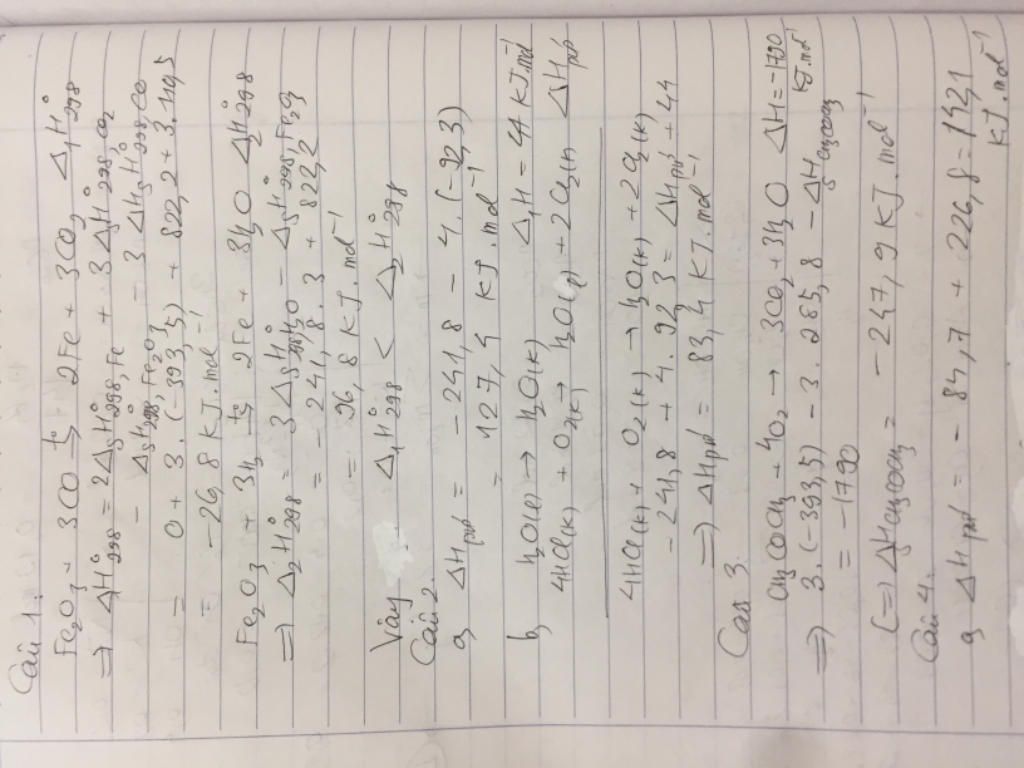 Câu 1.
Fe₂O₃ + 3CO →(t°) 2Fe + 3CO₂ Δ₁H°298
=> Δ₁H°298 = 2ΔfH°298,Fe + 3ΔfH°298,CO₂
- ΔfH°298,Fe₂O₃ - 3ΔfH°298,CO
= 0 + 3.(-393,5) + 822,2 + 3.110,5
= -26,8 kJ.mol⁻¹
Fe₂O₃ + 3H₂ →(t°) 2Fe + 3H₂O Δ₂H°298
=> Δ₂H°298 = 3ΔfH°298,H₂O - ΔfH°298,Fe₂O₃
= -241,8.3 + 822,2
= 96,8 kJ.mol⁻¹
Vậy Δ₁H°298 < Δ₂H°298
Câu 2.
a, ΔHpư = -241,8 - 4.(-92,3)
= 127,4 kJ.mol⁻¹
b, H₂O(l) → H₂O(k) Δ₁H = 44 kJ.mol⁻¹
4HCl(k) + O₂(k) → H₂O(l) + 2Cl₂(k) ΔHpư
4HCl(k) + O₂(k) → H₂O(k) + 2Cl₂(k)
-241,8 + 4.92,3 = ΔHpư + 44
=> ΔHpư = 83,4 kJ.mol⁻¹
Câu 3.
CH₃COCH₃ + 4O₂ → 3CO₂ + 3H₂O ΔH = -1790
kJ.mol⁻¹
=> 3.(-393,5) - 3.285,8 - ΔfHCH₃COCH₃
= -1790
(=) ΔfHCH₃COCH₃ = -247,9 kJ.mol⁻¹
Câu 4.
a, ΔHpư = -84,7 + 226,8 = 142,1
kJ.mol⁻¹